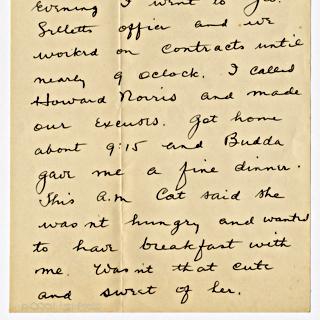 Evening I went to Geo.
Selletts office and we
worked on contracts until
nearly 9 oclock. I called
Howard Norris and made
our excuses. Got home
about 9:15 and Budda
gave me a fine dinner.
This a.m Cat said she
was nt hungry and wanted
to have breakfast with
me. Was nt that cute
and sweet of her.